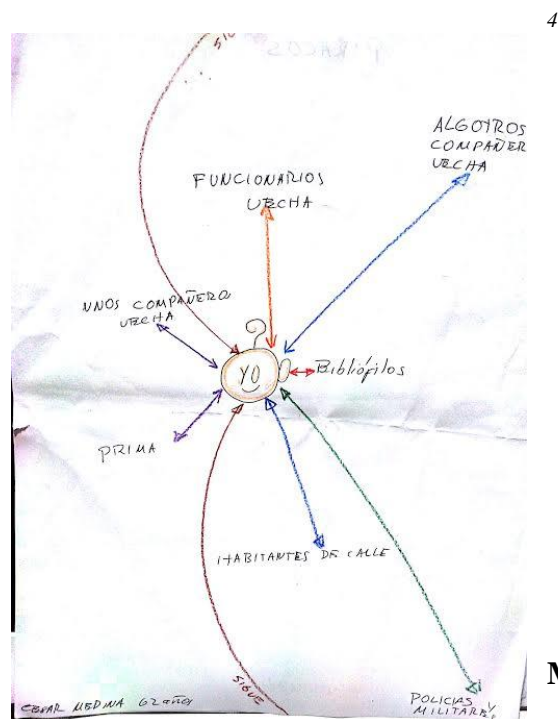 4
SIGUE
ALGOTROS
COMPAÑER
UBCHA
FUNCIONARIOS
UBCHA
UNOS COMPAÑERO
UBCHA
YO
Bibliófilos
PRIMA
HABITANTES DE CALLE
SIGUE
CESAR MEDINA 62 años
POLICIAS Y
MILITARES
M